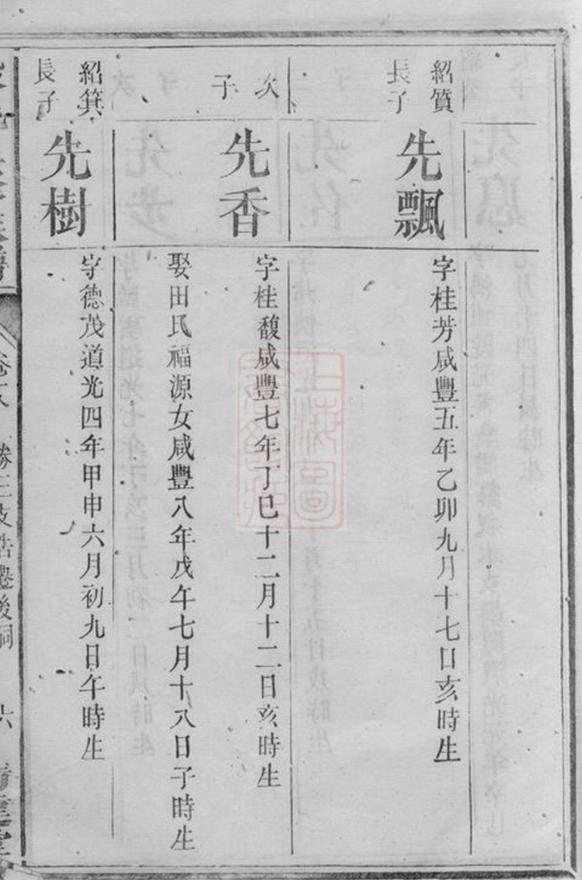 紹質
長子
先飄
字桂芳咸豐五年乙卯九月十七日亥時生
次
子
先香
字桂馥咸豐七年丁巳十二月十二日亥時生
娶田氏福源女咸豐八年戊午七月十八日子時生
紹箕
長子
先樹
字德茂道光四年甲申六月初九日午時生
六